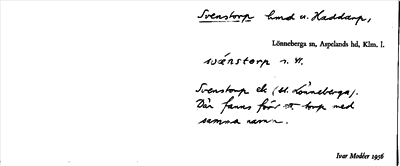 Svenstorp hmd u. Haddarp,
Lönneberga sn, Aspelands hd, Klm. l.
svänstorp n. 
Svenstorp ek (st. Lönneberga).
Där fanns förr torp med
samma namn.
Ivar Modéer 1956